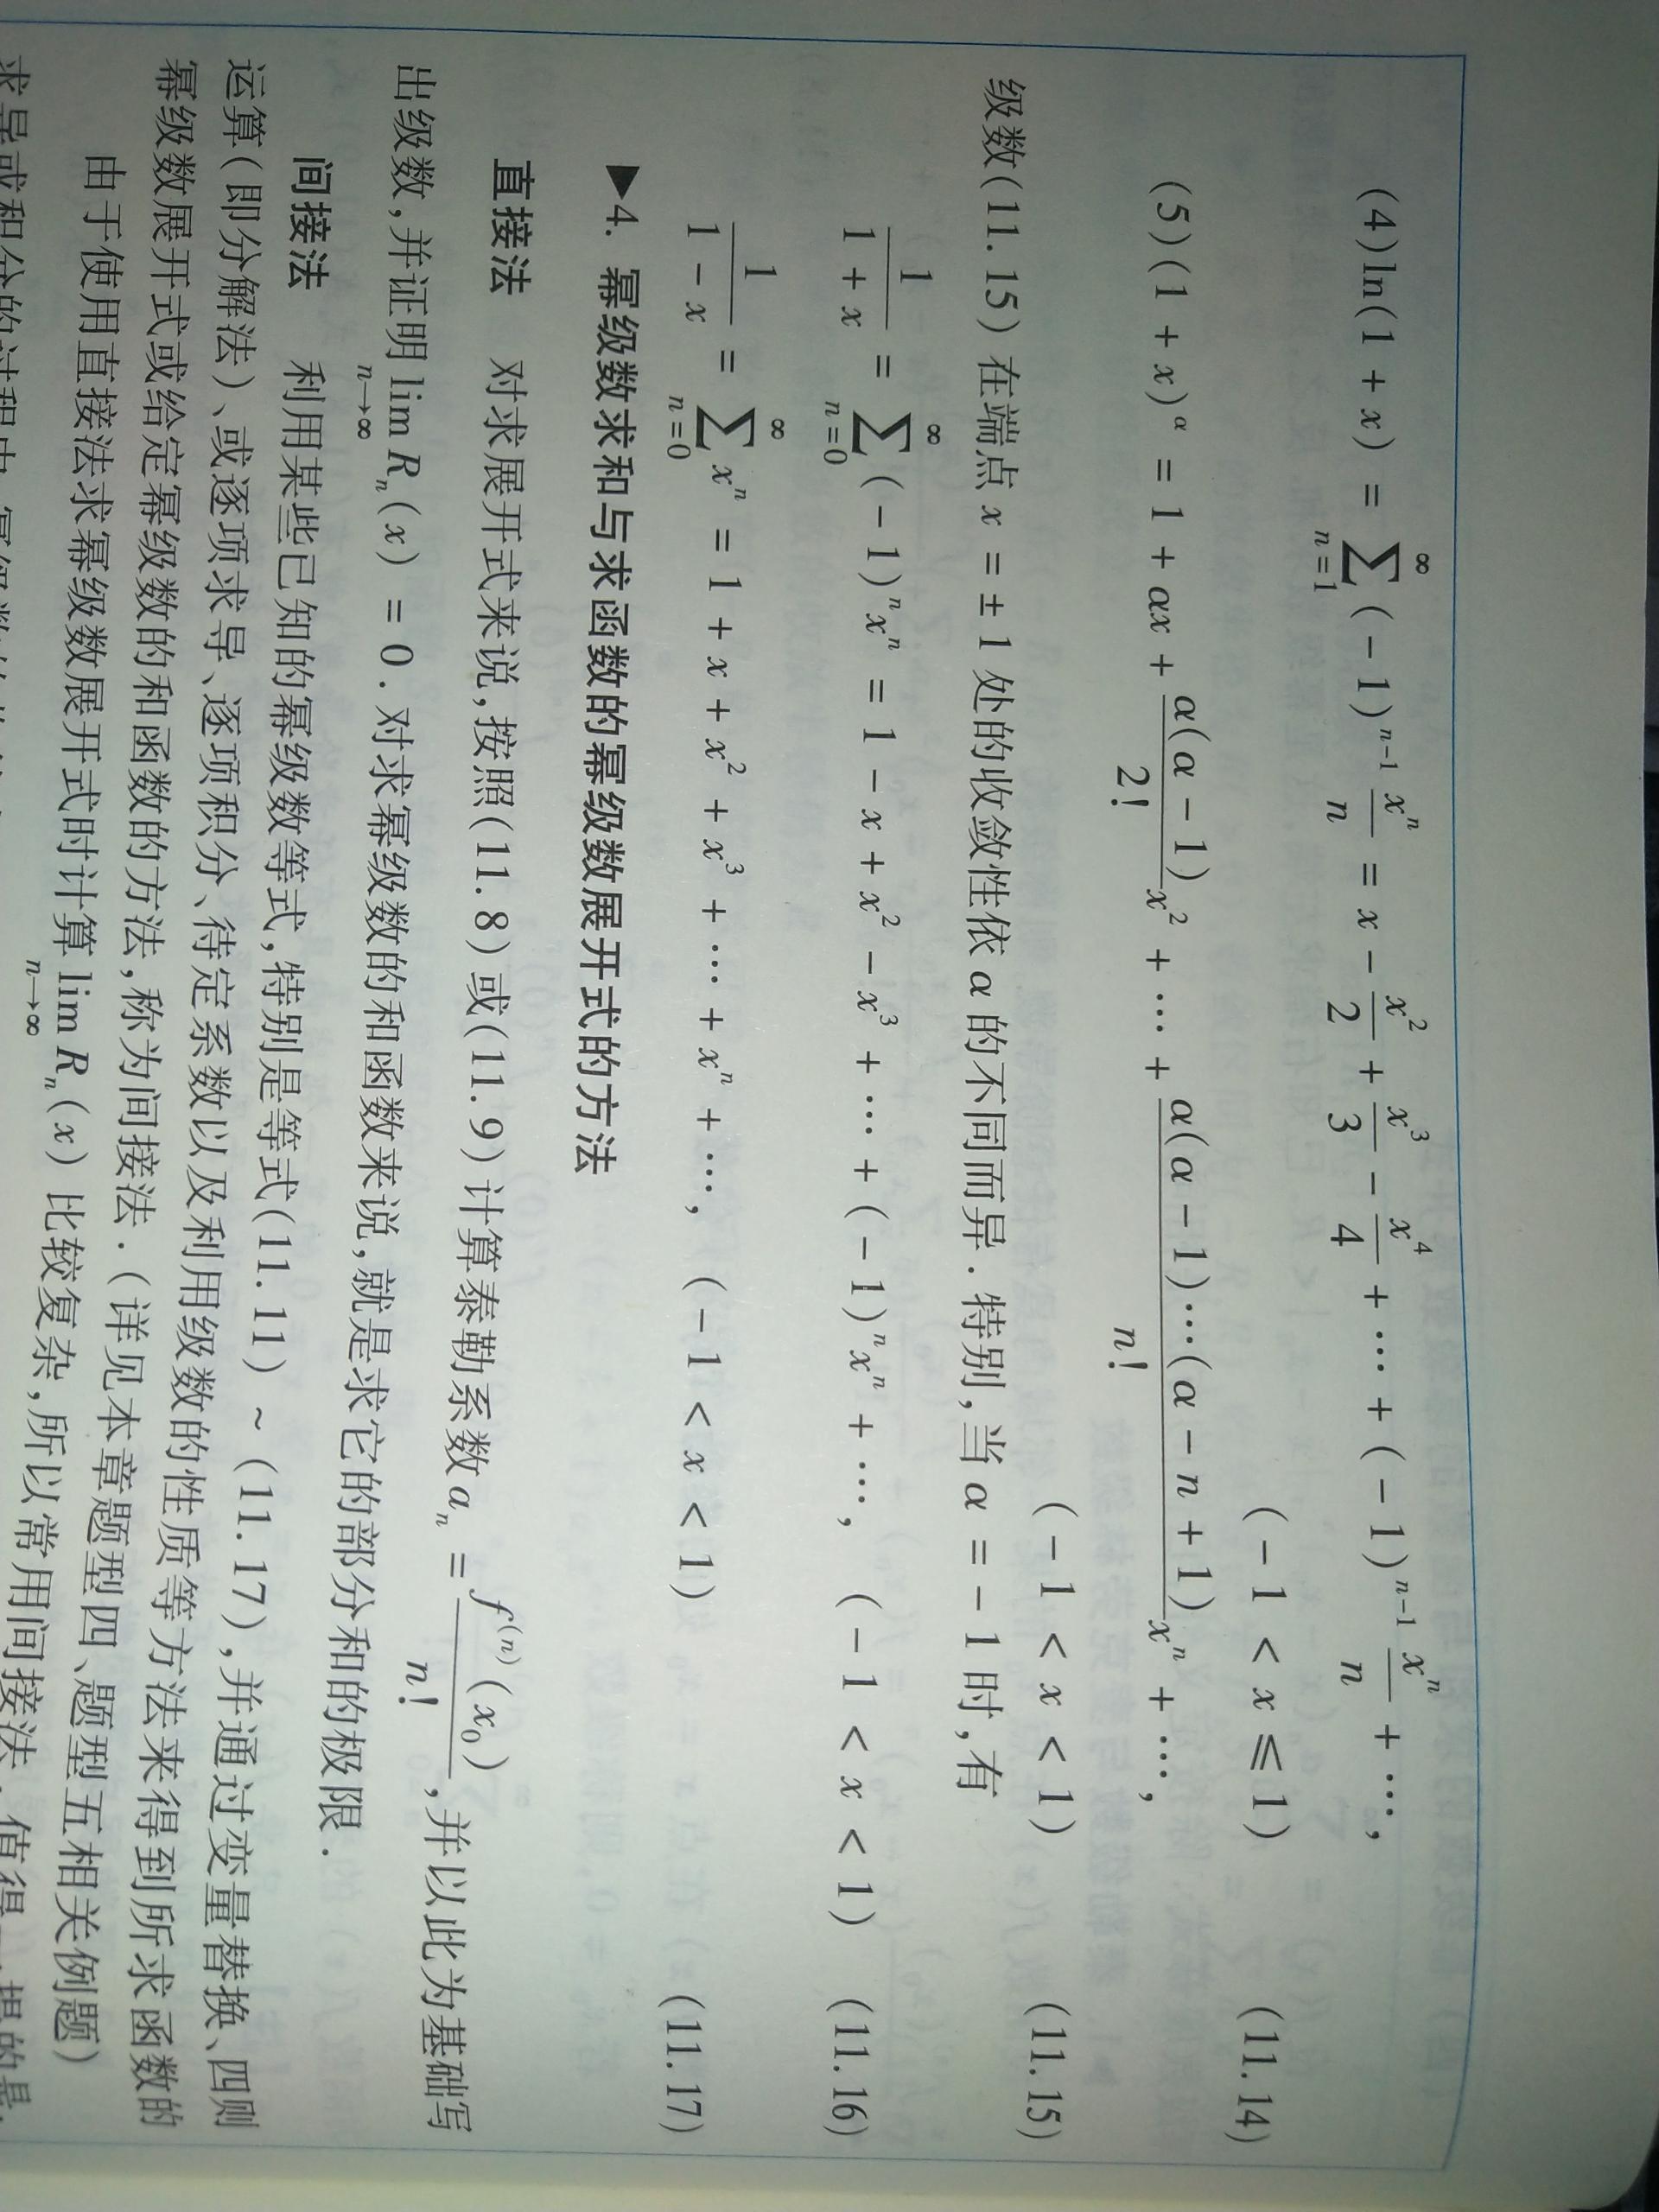 (4)ln(1 + x) = ∑_{n=1}^{∞} (-1)^{n-1} x^n/n = x - x^2/2 + x^3/3 - x^4/4 + … + (-1)^{n-1} x^n/n + …,
(-1 < x ≤ 1) (11.14)
(5)(1 + x)^α = 1 + αx + α(α-1)/2! x^2 + … + α(α-1)…(α-n+1)/n! x^n + …,
(-1 < x < 1) (11.15)
级数(11.15)在端点 x = ±1 处的收敛性依 α 的不同而异.特别,当 α = -1 时,有
1/(1+x) = ∑_{n=0}^{∞} (-1)^n x^n = 1 - x + x^2 - x^3 + … + (-1)^n x^n + …, (-1 < x < 1) (11.16)
1/(1-x) = ∑_{n=0}^{∞} x^n = 1 + x + x^2 + x^3 + … + x^n + …, (-1 < x < 1) (11.17)
▶4. 幂级数求和与求函数的幂级数展开式的方法
直接法 对求展开式来说,按照(11.8)或(11.9)计算泰勒系数 a_n = f^{(n)}(x_0)/n!,并以此为基础写
出级数,并证明 lim_{n→∞} R_n(x) = 0.对求幂级数的和函数来说,就是求它的部分和的极限.
间接法 利用某些已知的幂级数等式,特别是等式(11.11)~(11.17),并通过变量替换、四则
运算(即分解法)、或逐项求导、逐项积分、待定系数以及利用级数的性质等方法来得到所求函数的
幂级数展开式或给定幂级数的和函数的方法,称为间接法.(详见本章题型四、题型五相关例题)
由于使用直接法求幂级数展开式时计算 lim_{n→∞} R_n(x) 比较复杂,所以常用间接法.值得一提的是,
求导或积分的过程中,幂级数的